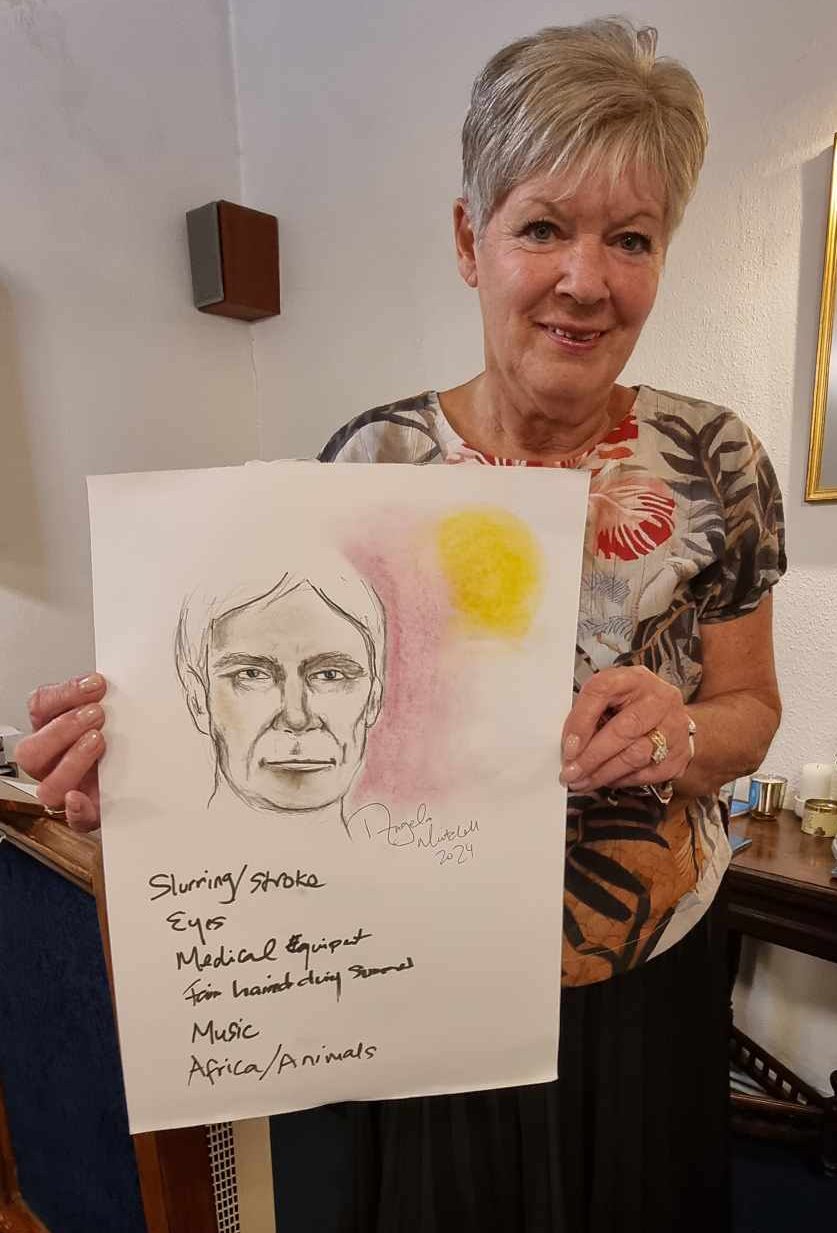 Angela
Mitchell
2024
Slurring/stroke
Eyes
Medical Equipmt
Fair haired during Summer
Music
Africa/Animals